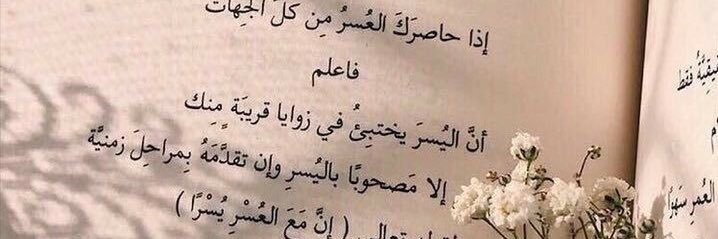 إذا حاصرَكَ العُسرُ مِن كلّ الجِهات
فاعلم
أنَّ اليُسرَ يختبِئُ في زوايا قريبَة مِنِك
إلا مَصحوبًا باليُسرِ وإن تقدَّمَهُ بِمراحِلَ زمنيَّة
تعالى ( إنَّ مَعَ العُسْرِ يُسْرًا )
فقط
العُمرِ سَهرًا